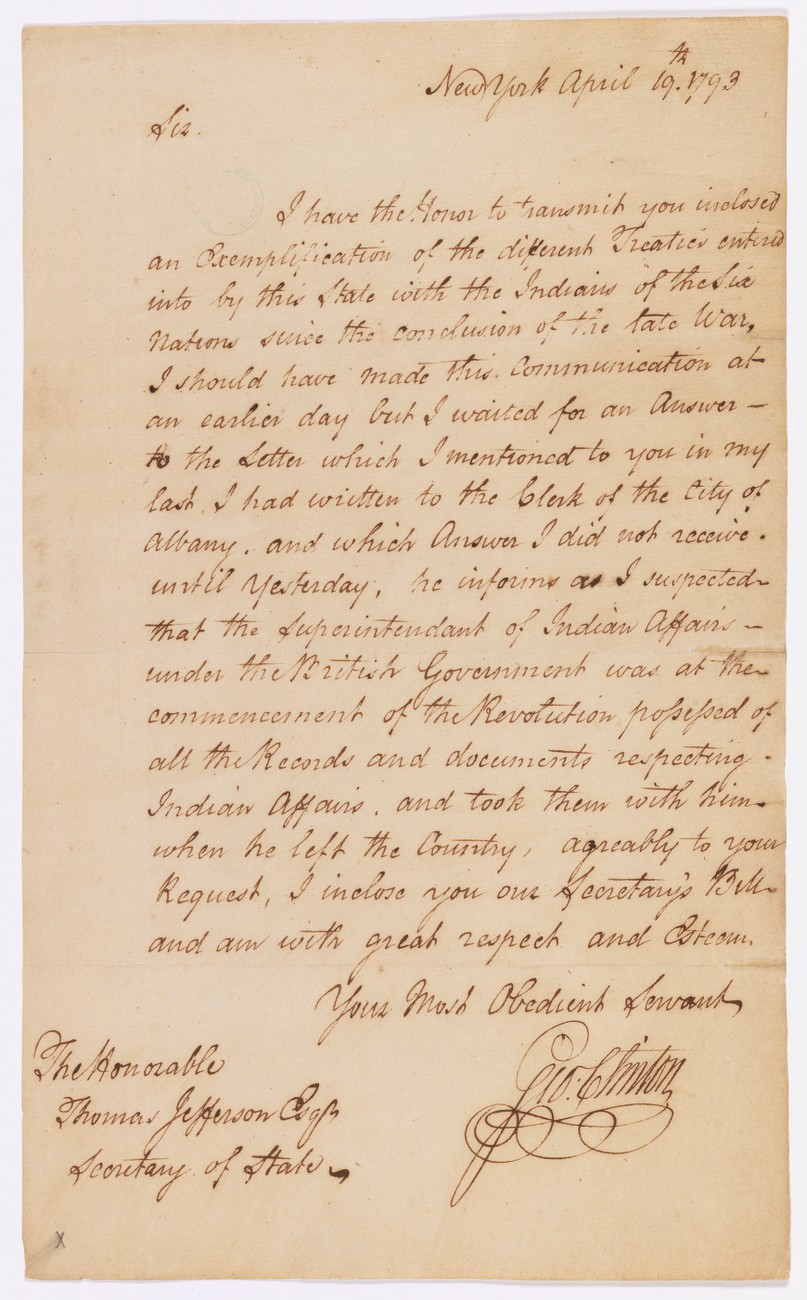 New York April 19.th 1793
Sir.
I have the Honor to transmit you inclosed
an Exemplification of the different Treaties entired
into by this State with the Indians of the Six
Nations since the conclusion of the late War,
I should have made this Communication at
an earlier day but I waited for an Answer –
to the Letter which I mentioned to you in my
last, I had written to the Clerk of the City of
Albany, and which Answer I did not receive.
until Yesterday, he informs as I suspected
that the Superintendant of Indian Affairs –
under the British Government was at the
commencement of the Revolution possessed of
all the Records and documents respecting
Indian Affairs, and took them with him
when he left the Country, agreably to your
Request, I inclose you our Secretary's Bill
and am with great respect and Esteem.
Your Most Obedient Servant
Geo: Clinton
The Honorable
Thomas Jefferson Esqr
Secretary of State
X